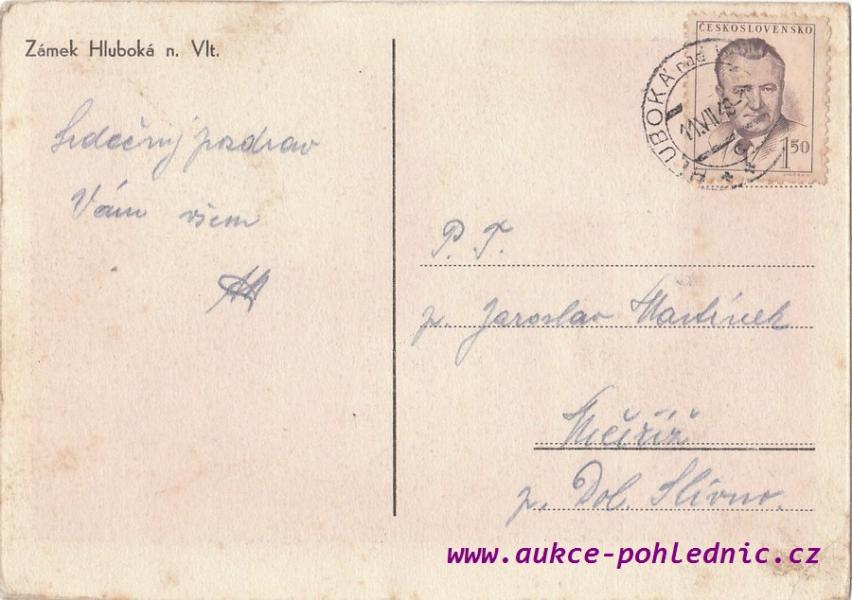 Zámek Hluboká n. Vlt.
Srdečný pozdrav
Vám všem
ČESKOSLOVENSKO
1 50
HLUBOKÁ nad
11.VII.49
P. T.
p. Jaroslav Martínek
Mečíříž
p. Dol. Slivno.
www.aukce-pohlednic.cz